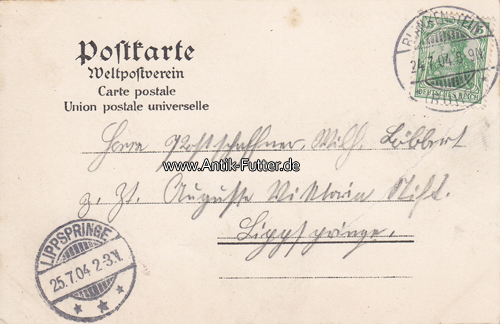 Postkarte
Weltpostverein
Carte postale
Union postale universelle
BLANKENSTEIN
25.7.04. 8-9N.
(RUHR)
DEUTSCHES REICH
Herrn Postschaffner Wilh. Löbbert
www.Antik-Futter.de
z. Zt. Auguste Viktoria Stift.
Lippspringe.
LIPPSPRINGE
25.7.04 2-3.V.